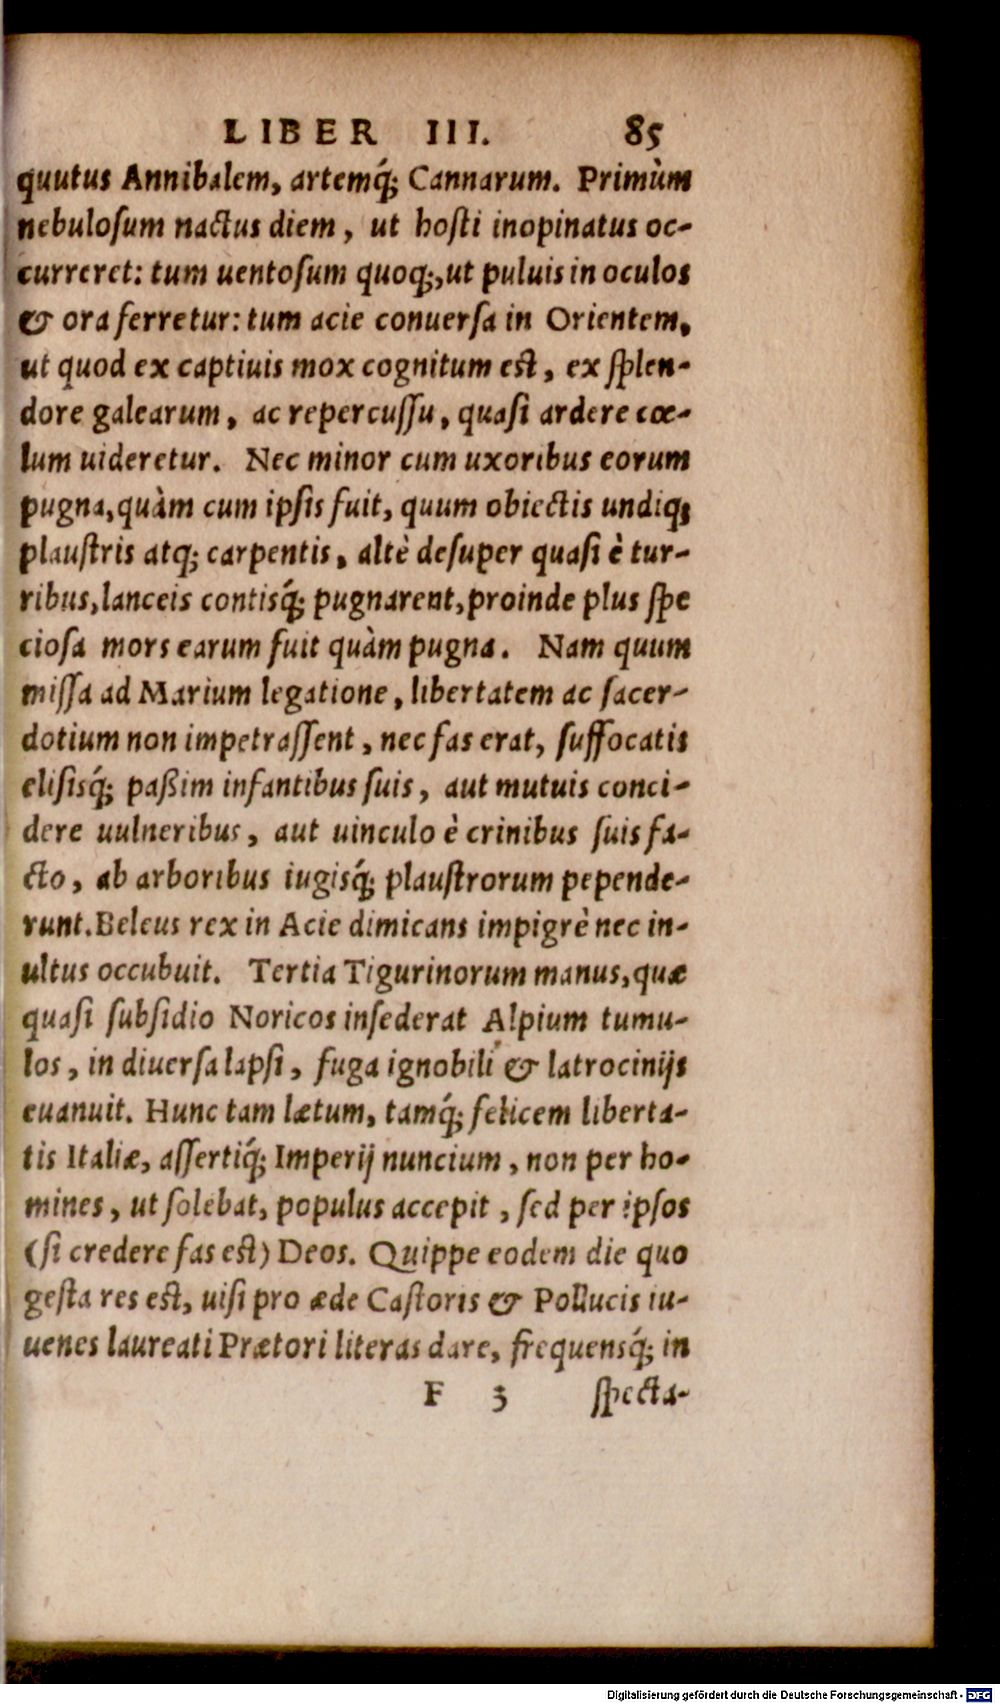 LIBER III. 85
quutus Annibalem, artemq́; Cannarum. Primùm
nebulosum nactus diem, ut hosti inopinatus oc-
curreret: tum uentosum quoq;, ut puluis in oculos
& ora ferretur: tum acie conuersa in Orientem,
ut quod ex captiuis mox cognitum est, ex splen-
dore galearum, ac repercussu, quasi ardere cœ-
lum uideretur. Nec minor cum uxoribus eorum
pugna, quàm cum ipsis fuit, quum obiectis undiq;
plaustris atq; carpentis, altè desuper quasi è tur-
ribus, lanceis contisq́; pugnarent, proinde plus spe
ciosa mors earum fuit quàm pugna. Nam quum
missa ad Marium legatione, libertatem ac sacer-
dotium non impetrassent, nec fas erat, suffocatis
elisisq́; paßim infantibus suis, aut mutuis conci-
dere uulneribus, aut uinculo è crinibus suis fa-
cto, ab arboribus iugisq́; plaustrorum pepende-
runt. Beleus rex in Acie dimicans impigrè nec in-
ultus occubuit. Tertia Tigurinorum manus, quæ
quasi subsidio Noricos insederat Alpium tumu-
los, in diuersa lapsi, fuga ignobili & latrocinijs
euanuit. Hunc tam lætum, tamq́; felicem liberta-
tis Italiæ, assertiq́; Imperij nuncium, non per ho-
mines, ut solebat, populus accepit, sed per ipsos
(si credere fas est) Deos. Quippe eodem die quo
gesta res est, uisi pro æde Castoris & Pollucis iu-
uenes laureati Prætori literas dare, frequensq́; in
F 3 specta-
Digitalisierung gefördert durch die Deutsche Forschungsgemeinschaft - DFG